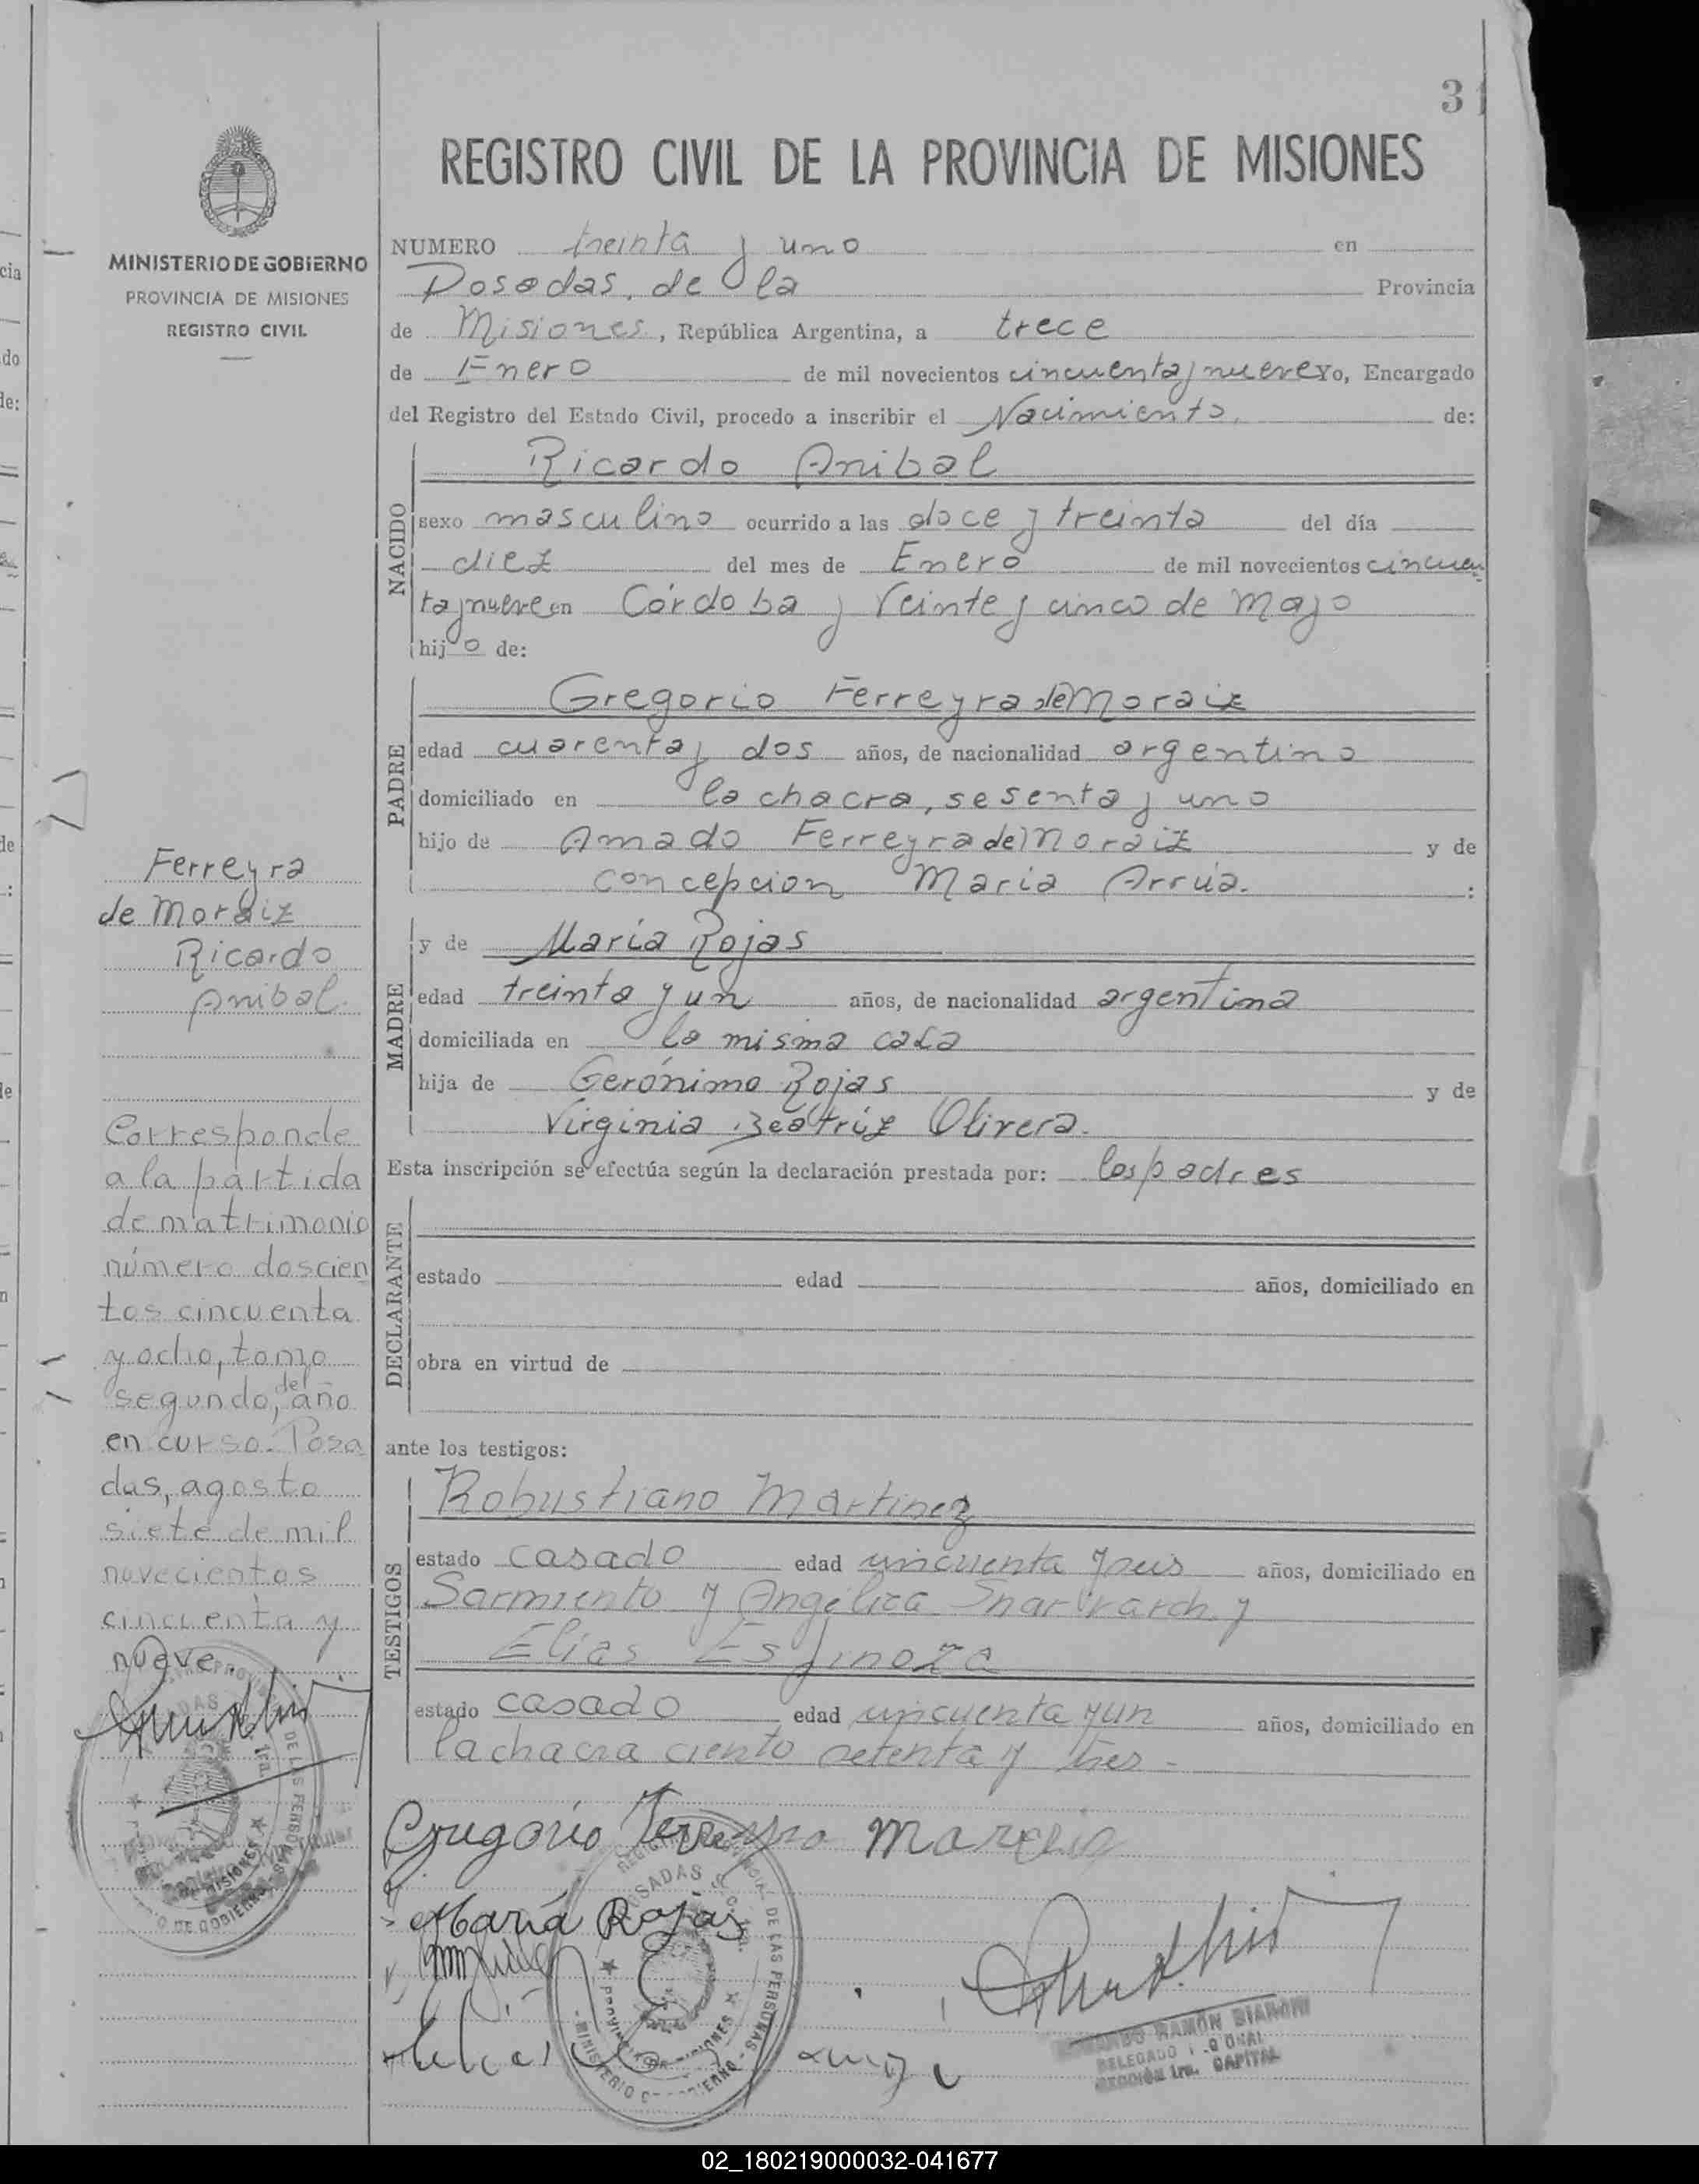 31
REGISTRO CIVIL DE LA PROVINCIA DE MISIONES
MINISTERIO DE GOBIERNO
PROVINCIA DE MISIONES
REGISTRO CIVIL
NUMERO treinta y uno en
Posadas, de la Provincia
de Misiones, República Argentina, a trece
de Enero de mil novecientos cincuenta y nueve Yo, Encargado
del Registro del Estado Civil, procedo a inscribir el Nacimiento. de:
NACIDO
Ricardo Anibal
sexo masculino ocurrido a las doce y treinta del día
diez del mes de Enero de mil novecientos cincuen
ta y nueve en Córdoba y Veinte y cinco de Mayo
hijo de:
PADRE
Gregorio Ferreyra de Moraiz
edad cuarenta y dos años, de nacionalidad argentino
domiciliado en la chacra, sesenta y uno
hijo de Amado Ferreyra de Moraiz y de
concepcion Maria Arrúa. :
MADRE
y de María Rojas
edad treinta y un años, de nacionalidad argentina
domiciliada en la misma casa
hija de Gerónimo Rojas y de
Virginia Beatríz Olivera.
Esta inscripción se efectúa según la declaración prestada por: los padres
DECLARANTE
estado edad años, domiciliado en
obra en virtud de
ante los testigos:
TESTIGOS
Robustiano Martinez
estado casado edad cincuenta y seis años, domiciliado en
Sarmiento y Angélica y
Elias Espinoza
estado casado edad cincuenta y un años, domiciliado en
la chacra ciento setenta y tres -
Ferreyra
de Moraiz
Ricardo
Anibal.
Corresponde
a la partida
de matrimonio
número doscien
tos cincuenta
y ocho, tomo
segundo, del año
en curso. Posa
das, agosto
siete de mil
novecientos
cincuenta y
nueve.
Gregorio Ferreyra
María Rojas
REGISTRO PROVINCIAL DE LAS PERSONAS
POSADAS
PROVINCIA DE MISIONES
MINISTERIO DE GOBIERNO
RAMÓN BIANCHI
DELEGADO
SECCIÓN 1ra. CAPITAL
02_180219000032-041677